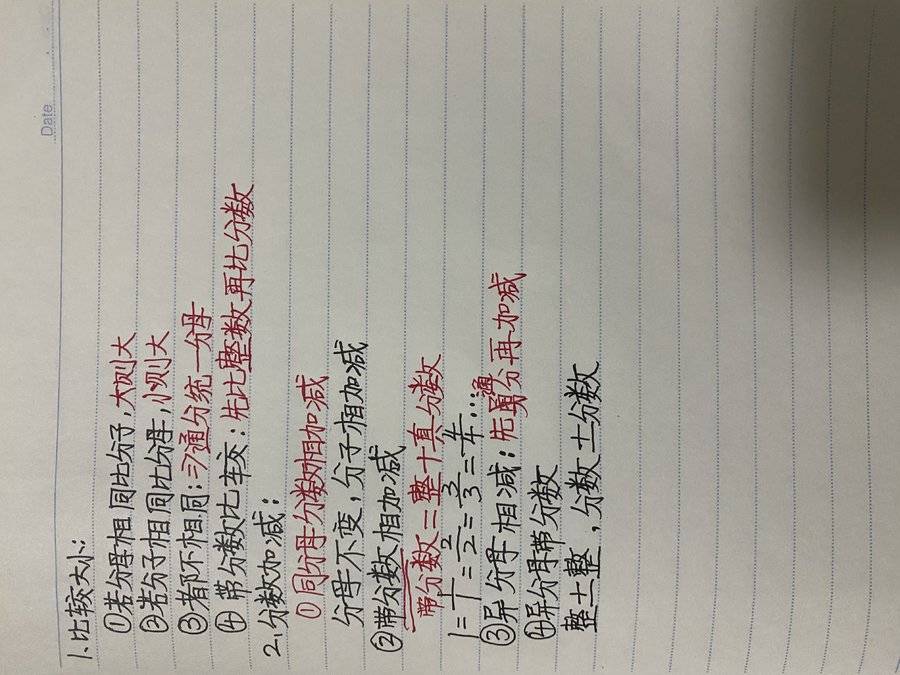 Date
1.比较大小:
①若分母相同比分子,大则大
②若分子相同比分母,小则大
③都不相同:⇒通分统一分母
④带分数比较:先比整数再比分数
2.分数加减:
①同分母分数相加减
分母不变,分子相加减
②带分数相加减
带分数=整+真分数
1=1/1=2/2=3/3=4/4...
③异分母相减:先通分再加减
④异分母带分数
整±整,分数±分数